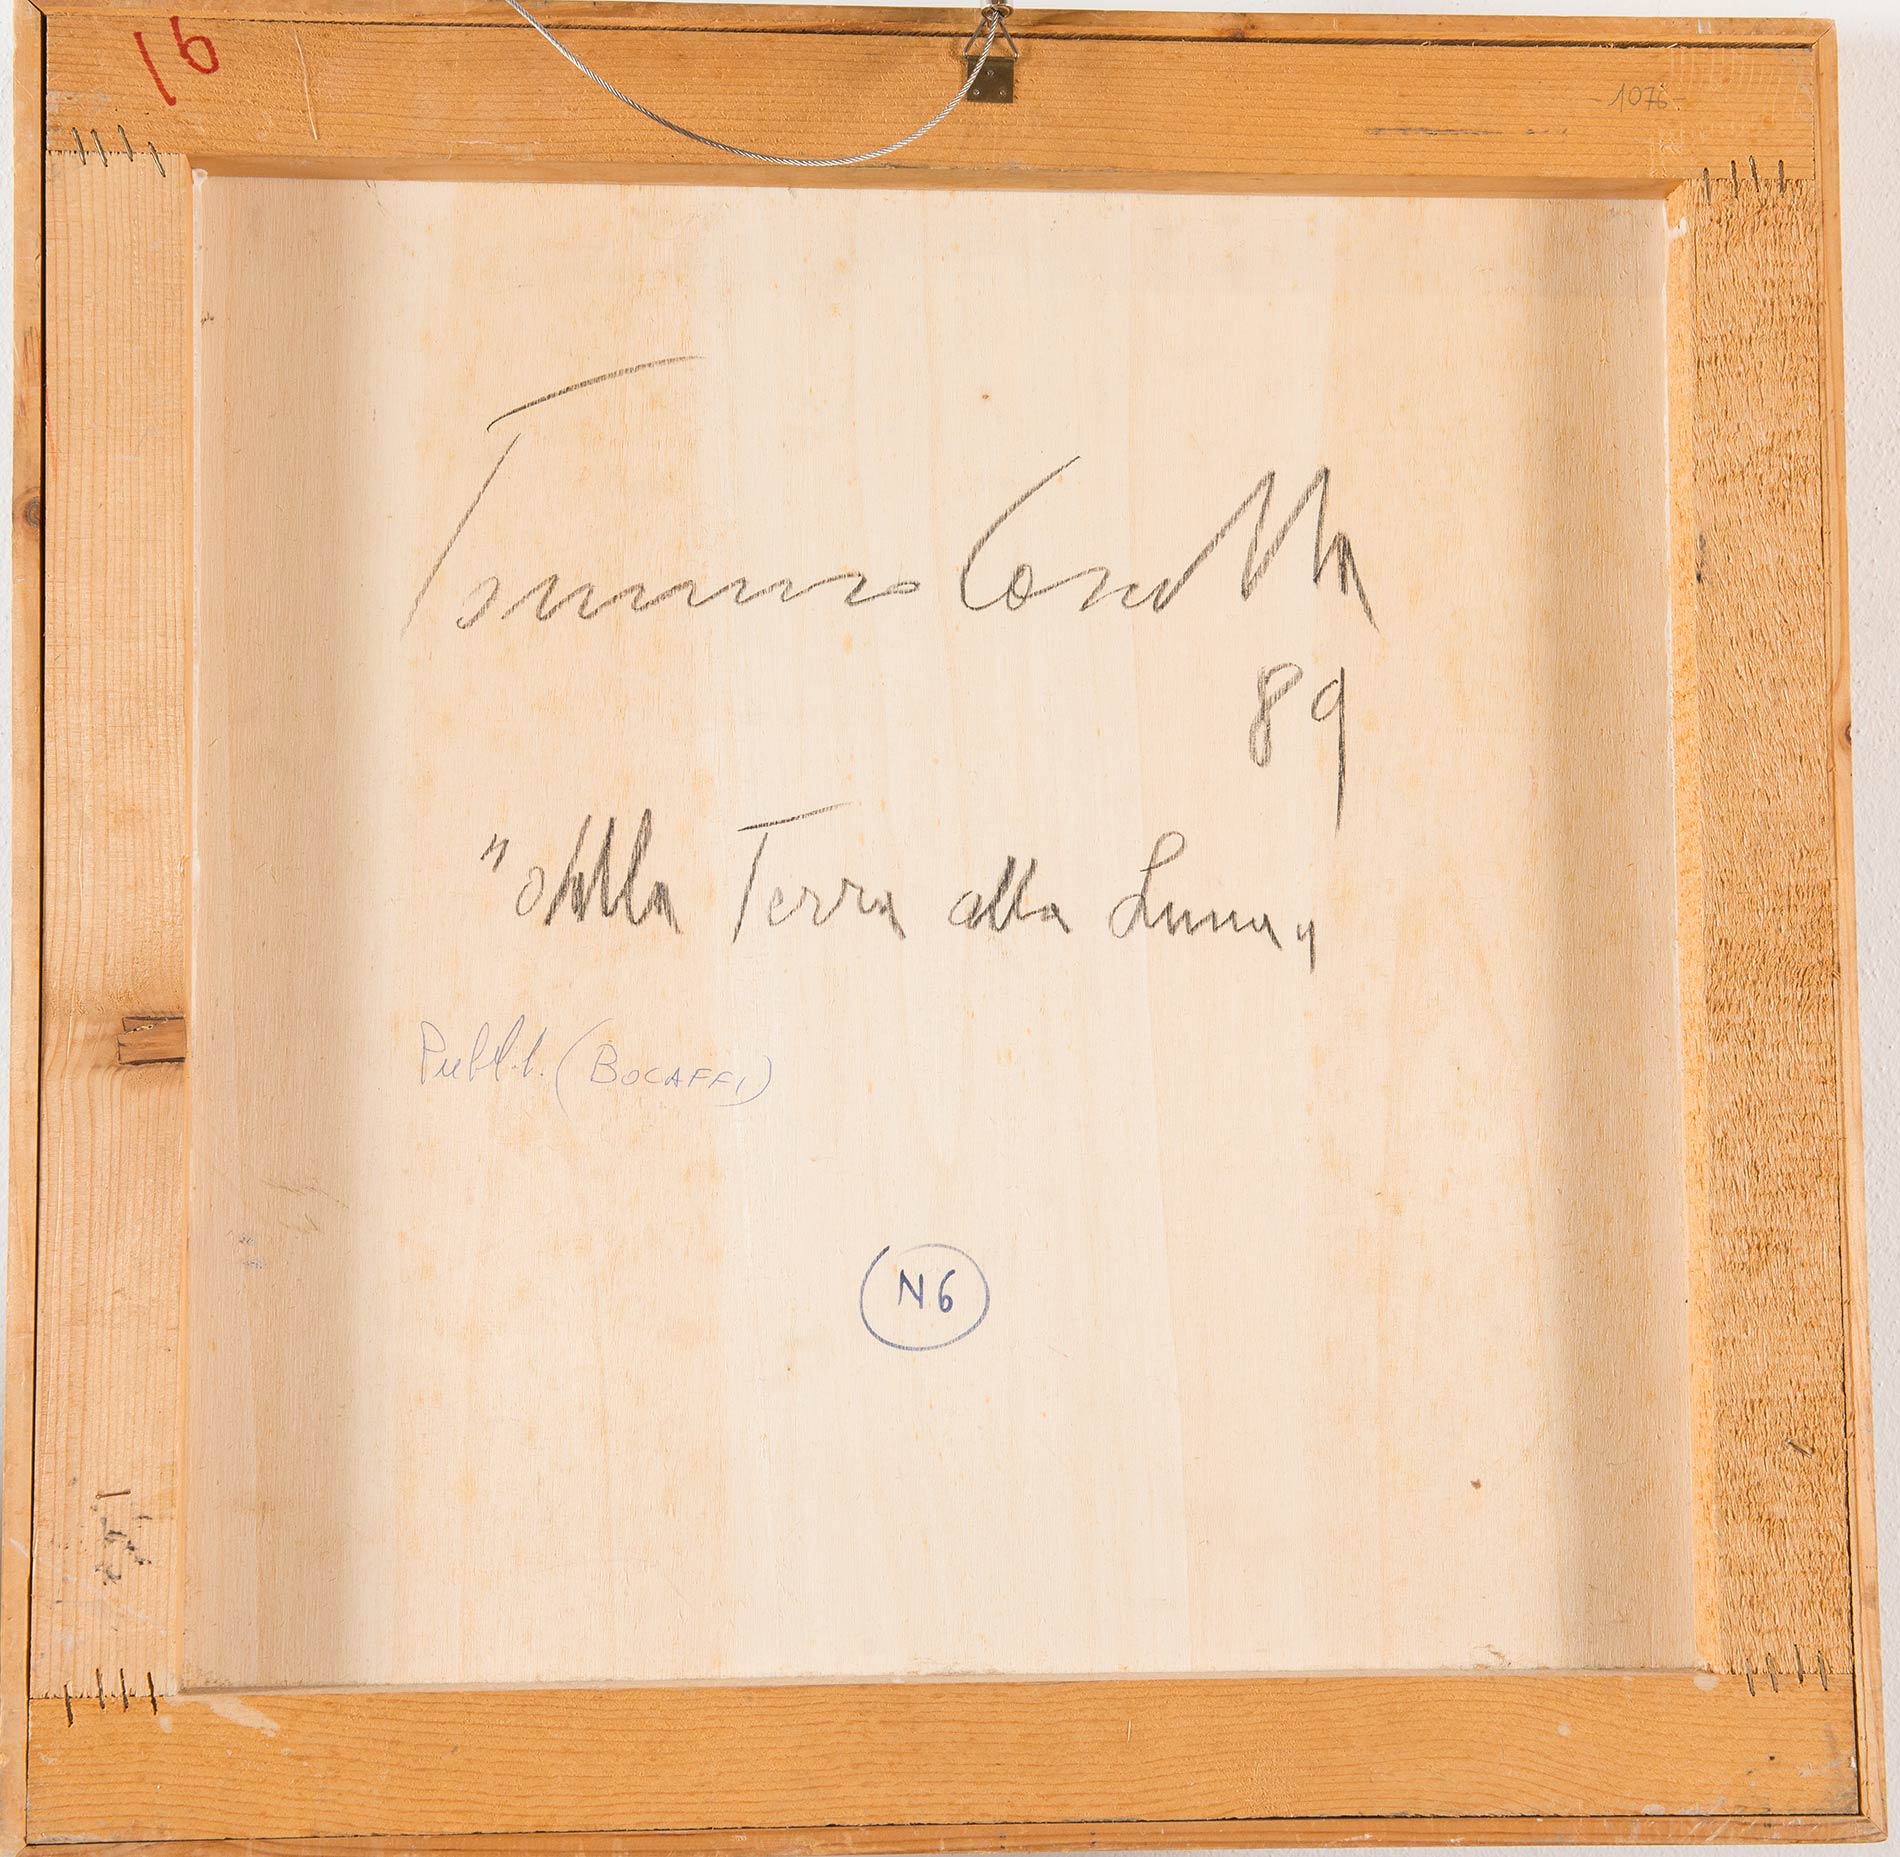 16
-1076-
Tommaso Cascella
89
"dalla Terra alla Luna"
Pubbl. (BOCAFFI)
N6